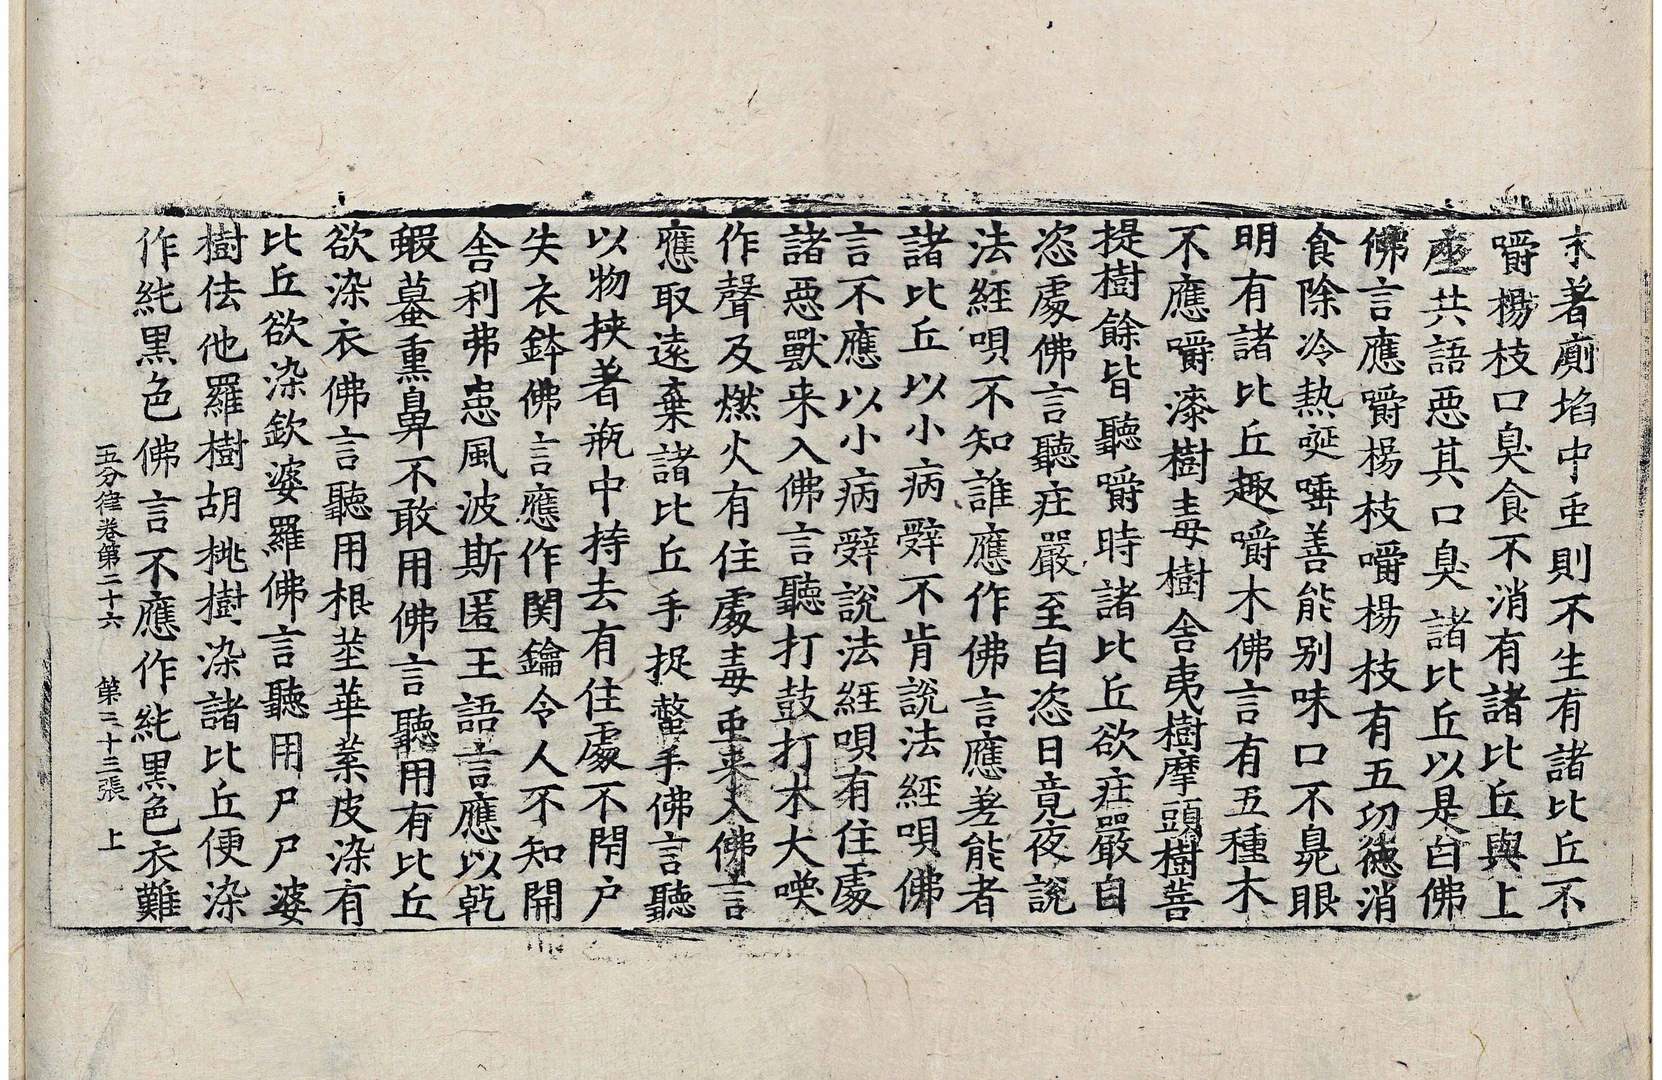 末著廁埳中虫則不生有諸比丘不
嚼楊枝口臭食不消有諸比丘與上
座共語惡其口臭諸比丘以是白佛
佛言應嚼楊枝嚼楊枝有五功德消
食除冷熱唌唾善能别味口不臭眼
明有諸比丘趣嚼木佛言有五種木
不應嚼漆樹毒樹舍夷樹摩頭樹菩
提樹餘皆聽嚼時諸比丘欲莊嚴自
恣處佛言聽莊嚴至自恣日竟夜說
法經唄不知誰應作佛言應差能者
諸比丘以小病辭不肯說法經唄佛
言不應以小病辭說法經唄有住處
諸惡獸来入佛言聽打鼓打木大喚
作聲及燃火有住處毒虫来入佛言
應取遠棄諸比丘手捉螫手佛言聽
以物挾著瓶中持去有住處不閇户
失衣鉢佛言應作関鑰令人不知開
舍利弗患風波斯匿王語言應以乹
蝦蟇熏鼻不敢用佛言聽用有比丘
欲染衣佛言聽用根莖華葉皮染有
比丘欲染欽婆羅佛言聽用尸尸婆
樹佉他羅樹胡桃樹染諸比丘便染
作純黑色佛言不應作純黑色衣難
五分律卷第二十六 第三十三張 上